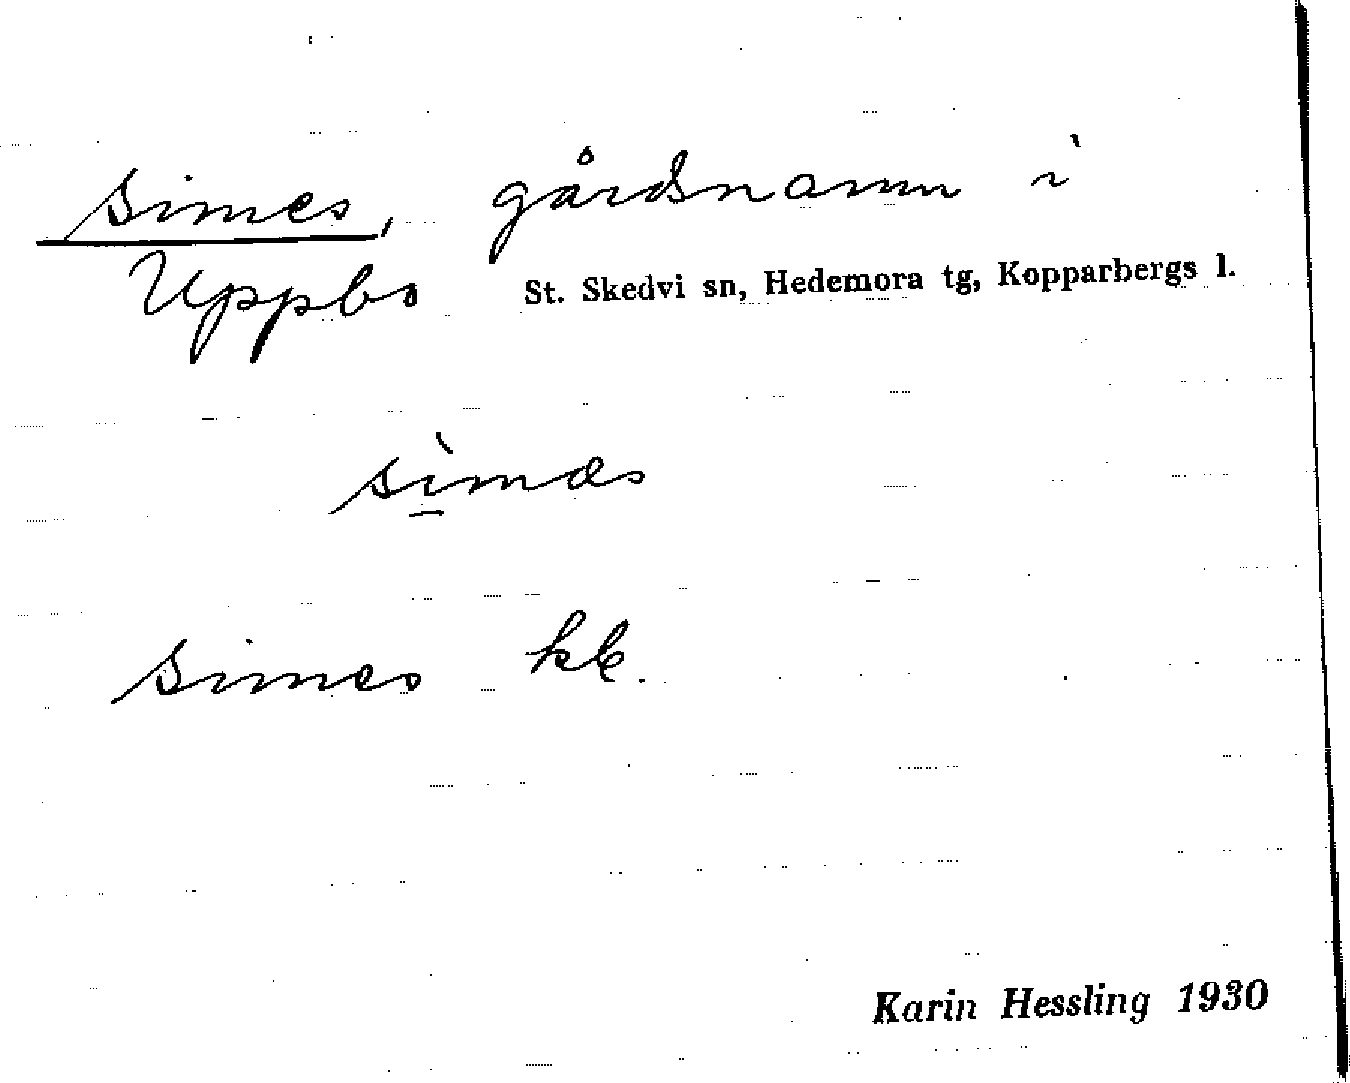 Simes, gårdsnamn i
Uppbo St. Skedvi sn, Hedemora tg, Kopparbergs l.
sìmæs
Simes kk.
Karin Hessling 1930